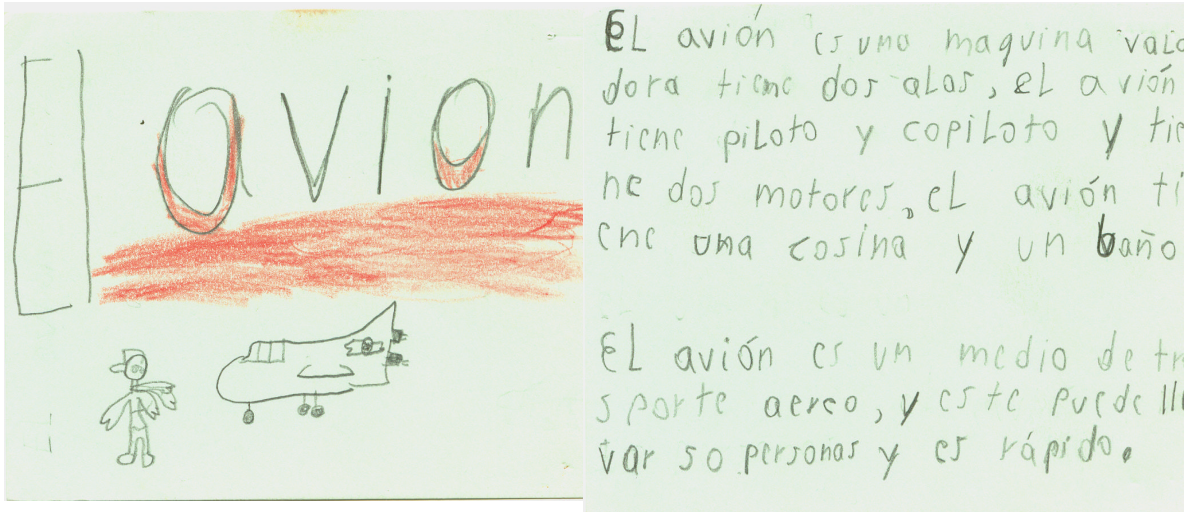 El avion
EL avión es una maquina vala
dora tiene dos alas, EL avión
tiene piloto y copiloto y tie
ne dos motores, eL avión ti
ene una cosina y un baño
EL avión es un medio de tr
sporte aereo, y este puede lle
var 50 personas y es rápido.